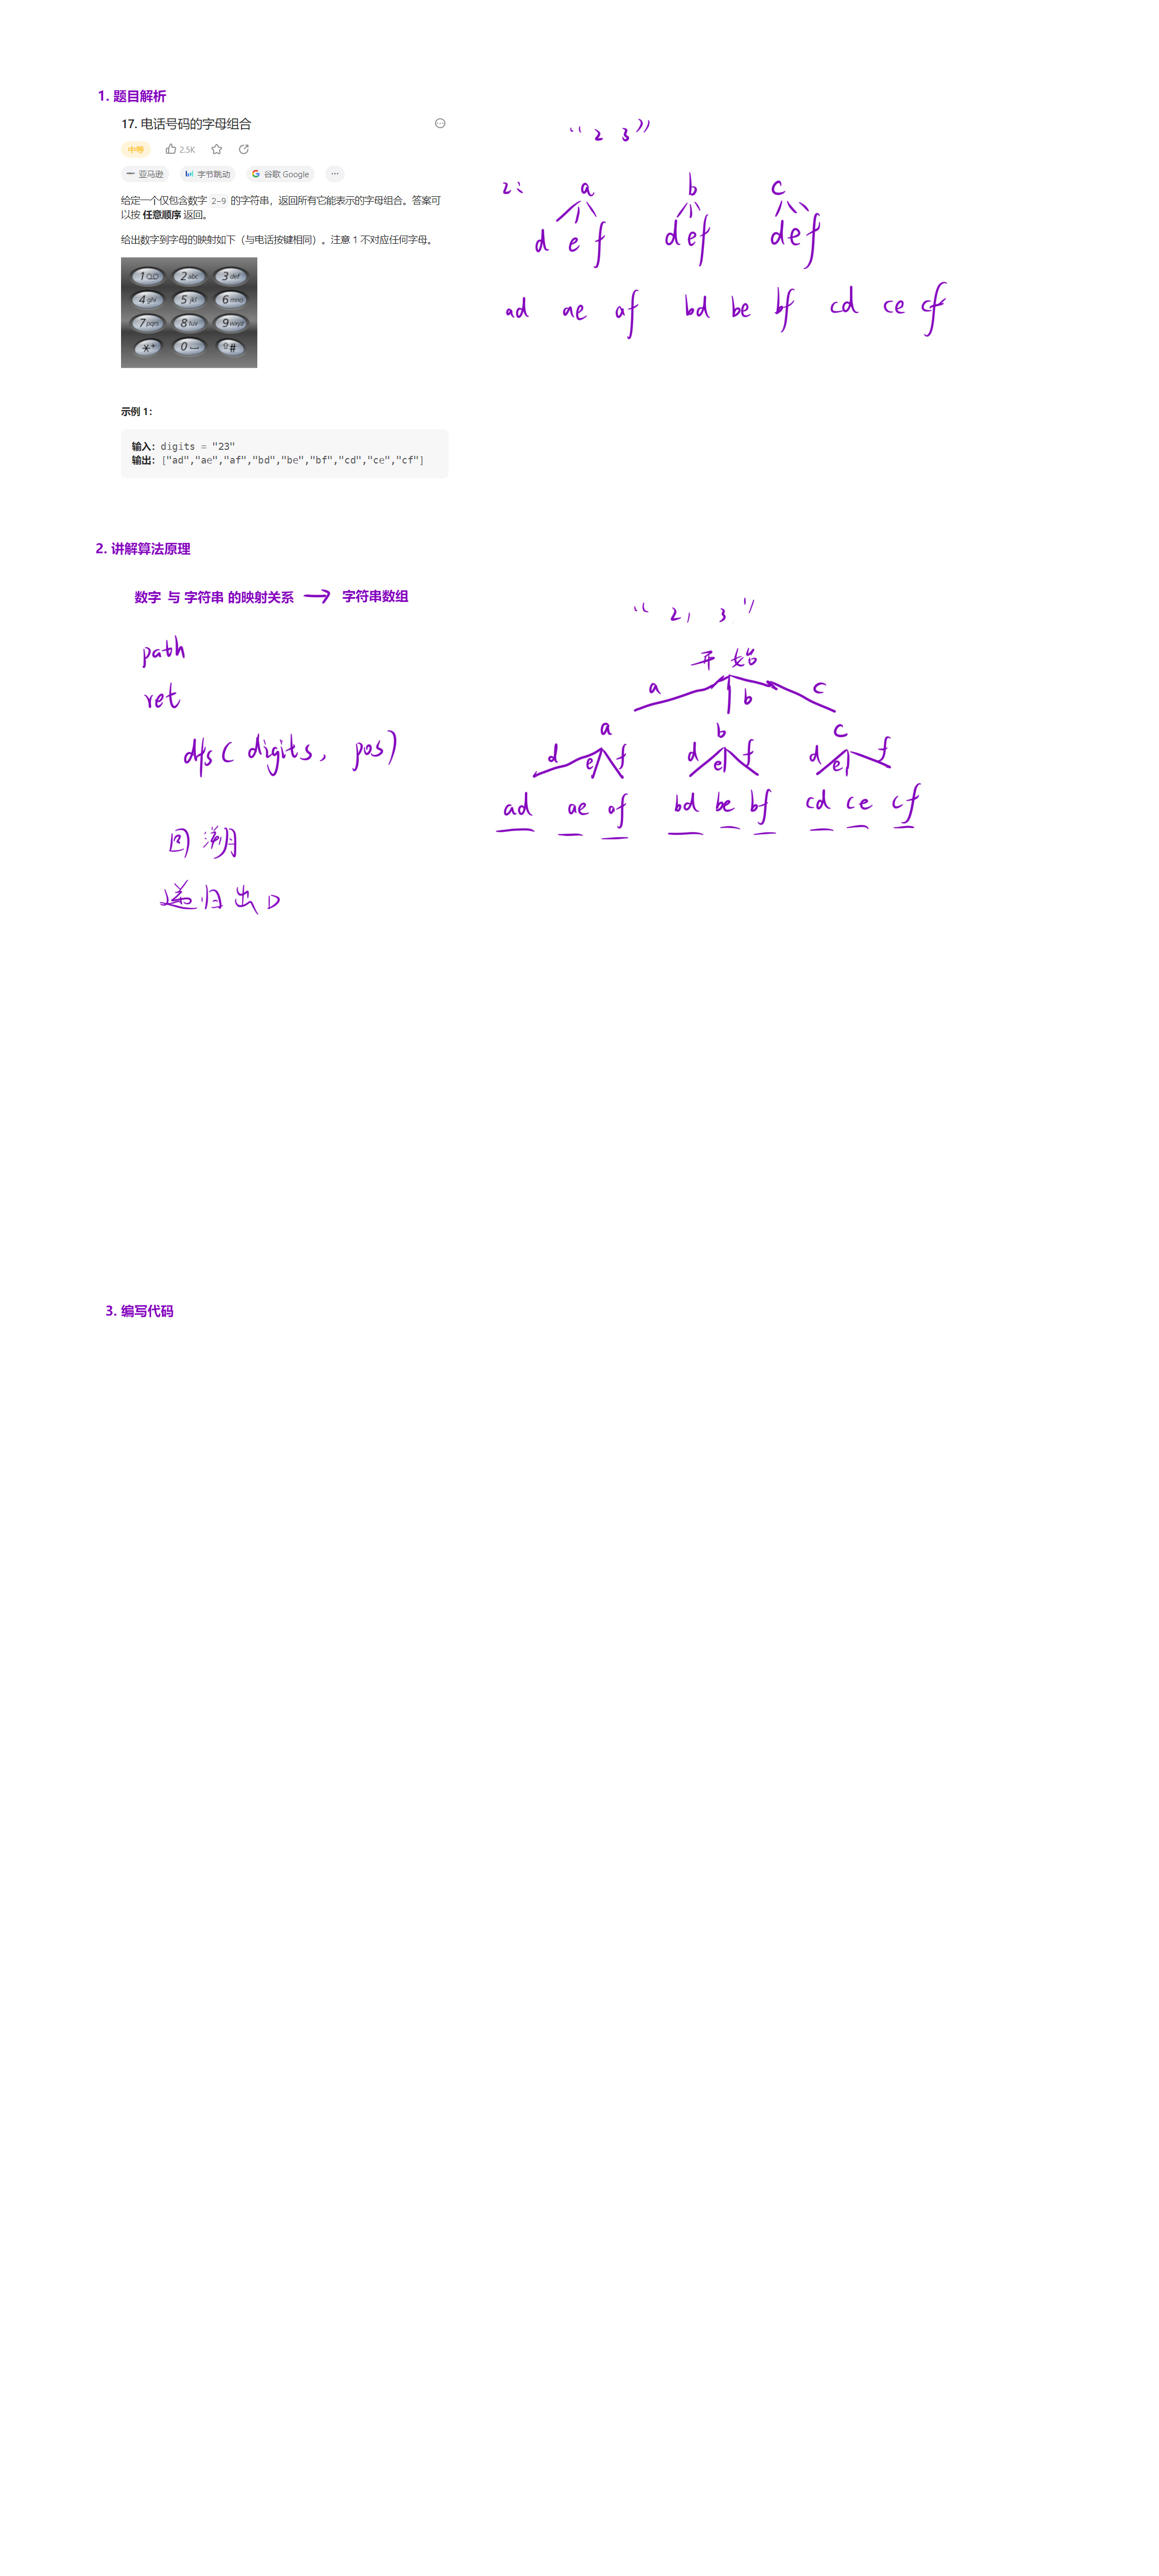 1. 题目解析
17. 电话号码的字母组合
中等 2.5K
亚马逊 字节跳动 谷歌 Google ...
给定一个仅包含数字 2-9 的字符串，返回所有它能表示的字母组合。答案可
以按 任意顺序 返回。
给出数字到字母的映射如下（与电话按键相同）。注意 1 不对应任何字母。
1 2 abc 3 def
4 ghi 5 jkl 6 mno
7 pqrs 8 tuv 9 wxyz
*+ 0 #
示例 1：
输入：digits = "23"
输出：["ad","ae","af","bd","be","bf","cd","ce","cf"]
"2 3"
2: a b c
d e f d e f d e f
ad ae af bd be bf cd ce cf
2. 讲解算法原理
数字 与 字符串 的映射关系 → 字符串数组
path
ret
dfs ( digits, pos )
回溯
递归出口
"2, 3"
开始
a b c
a b c
d e f d e f d e f
ad ae af bd be bf cd ce cf
3. 编写代码